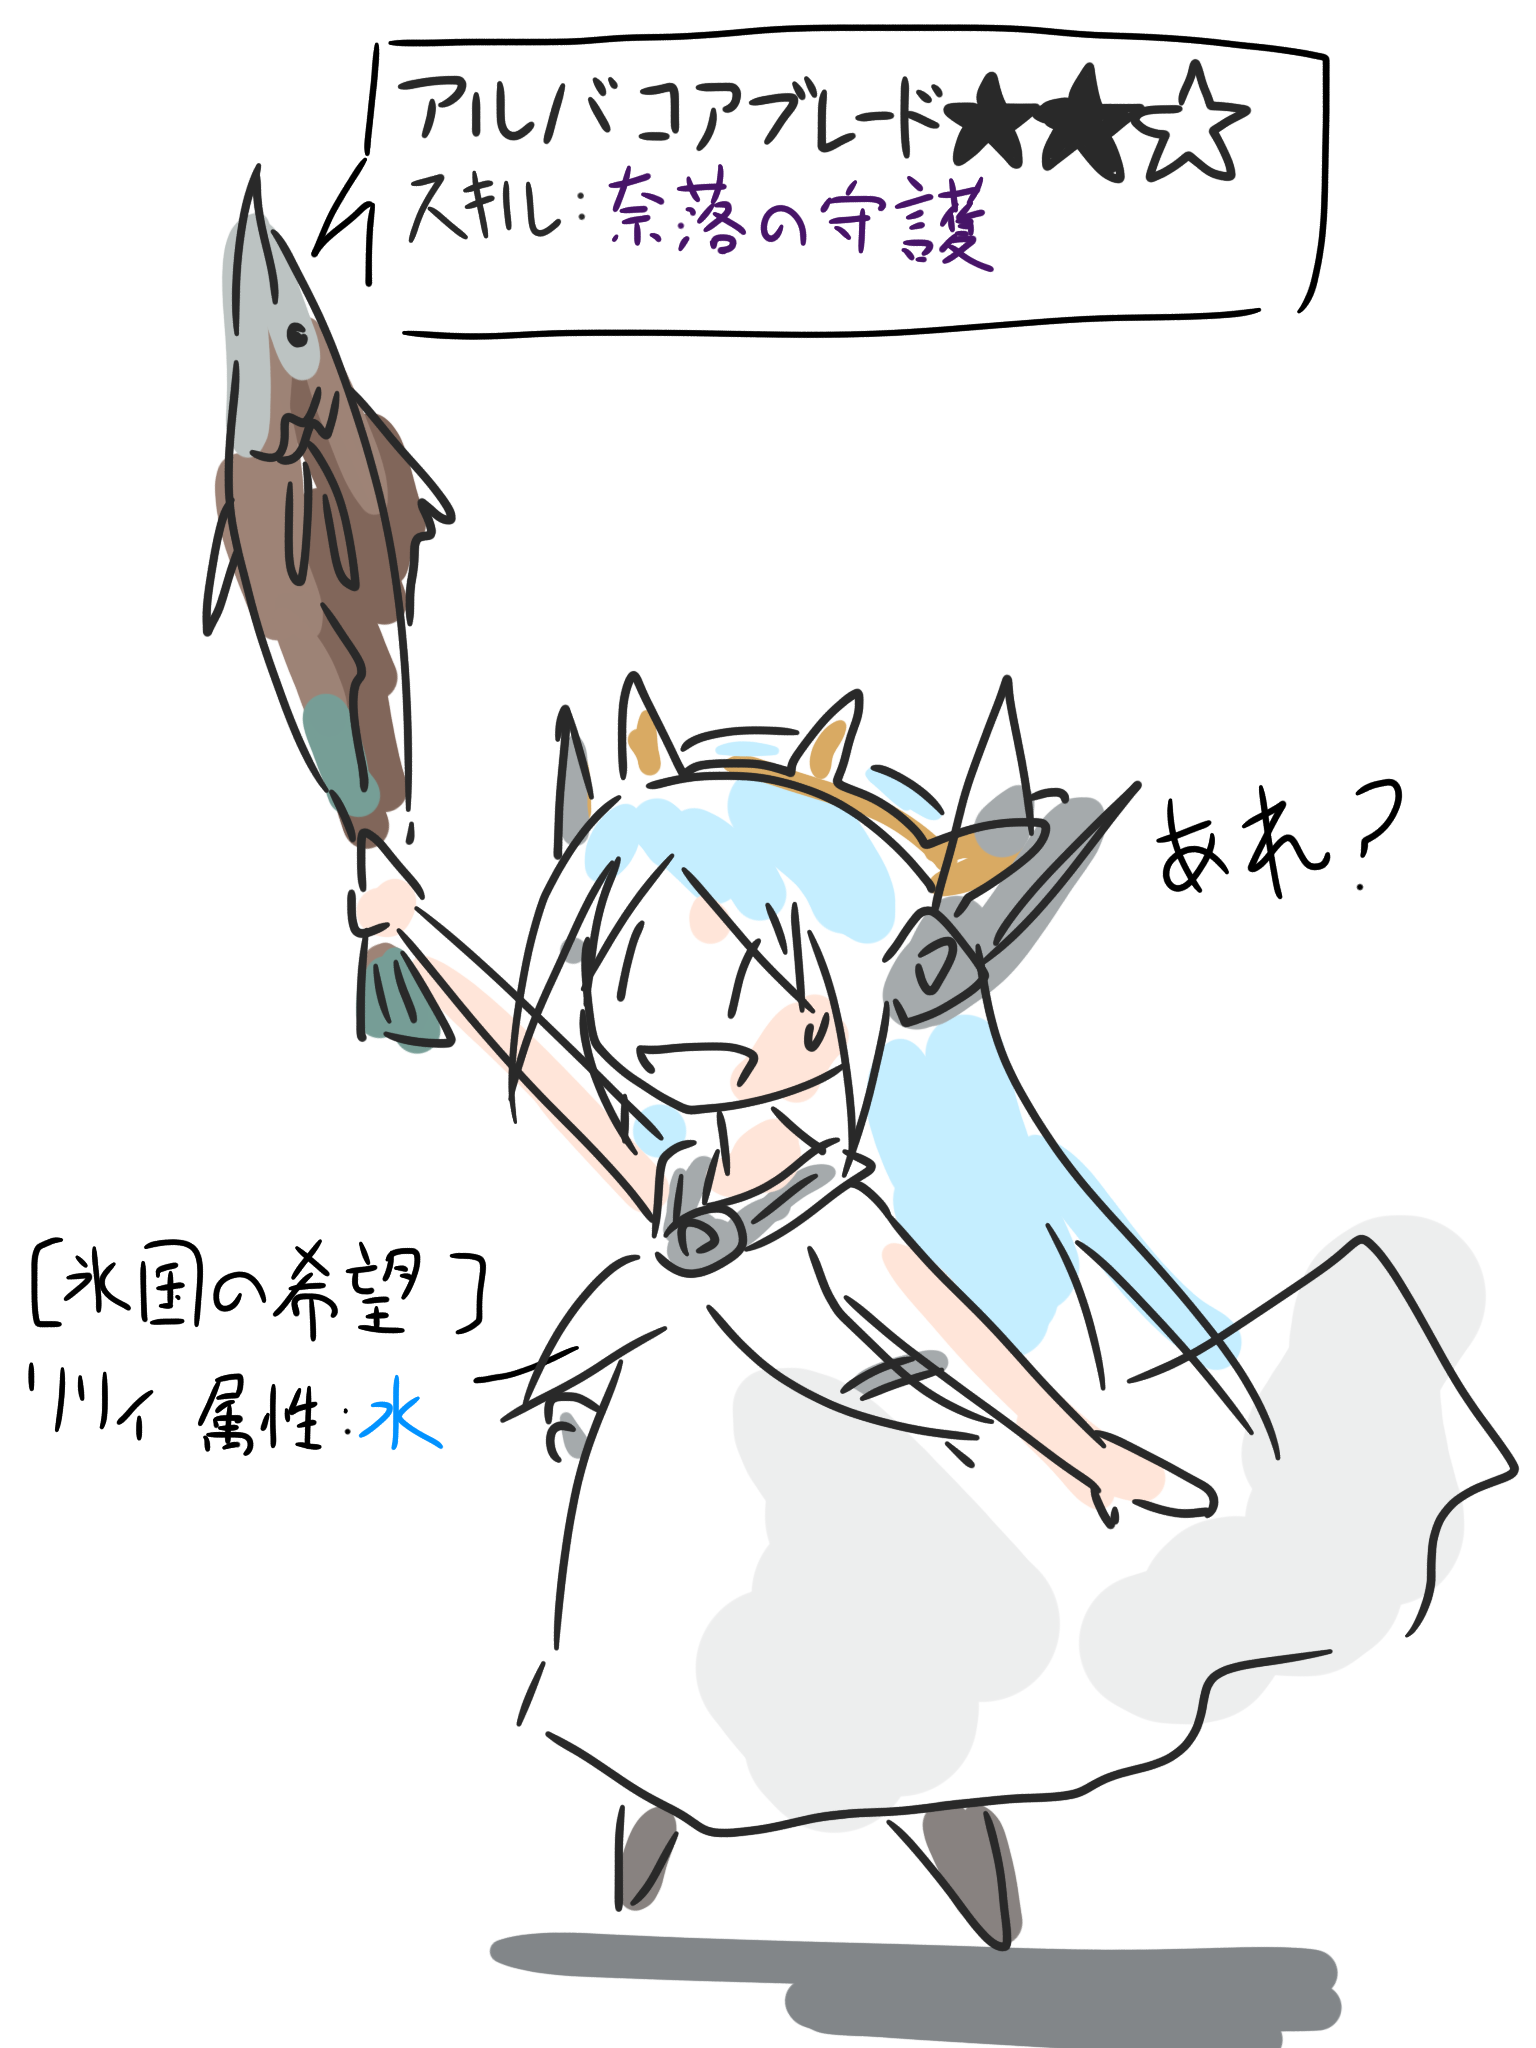 アルバコアブレード★★☆
スキル:奈落の守護
あれ?
[氷国の希望]
リリィ 属性:水